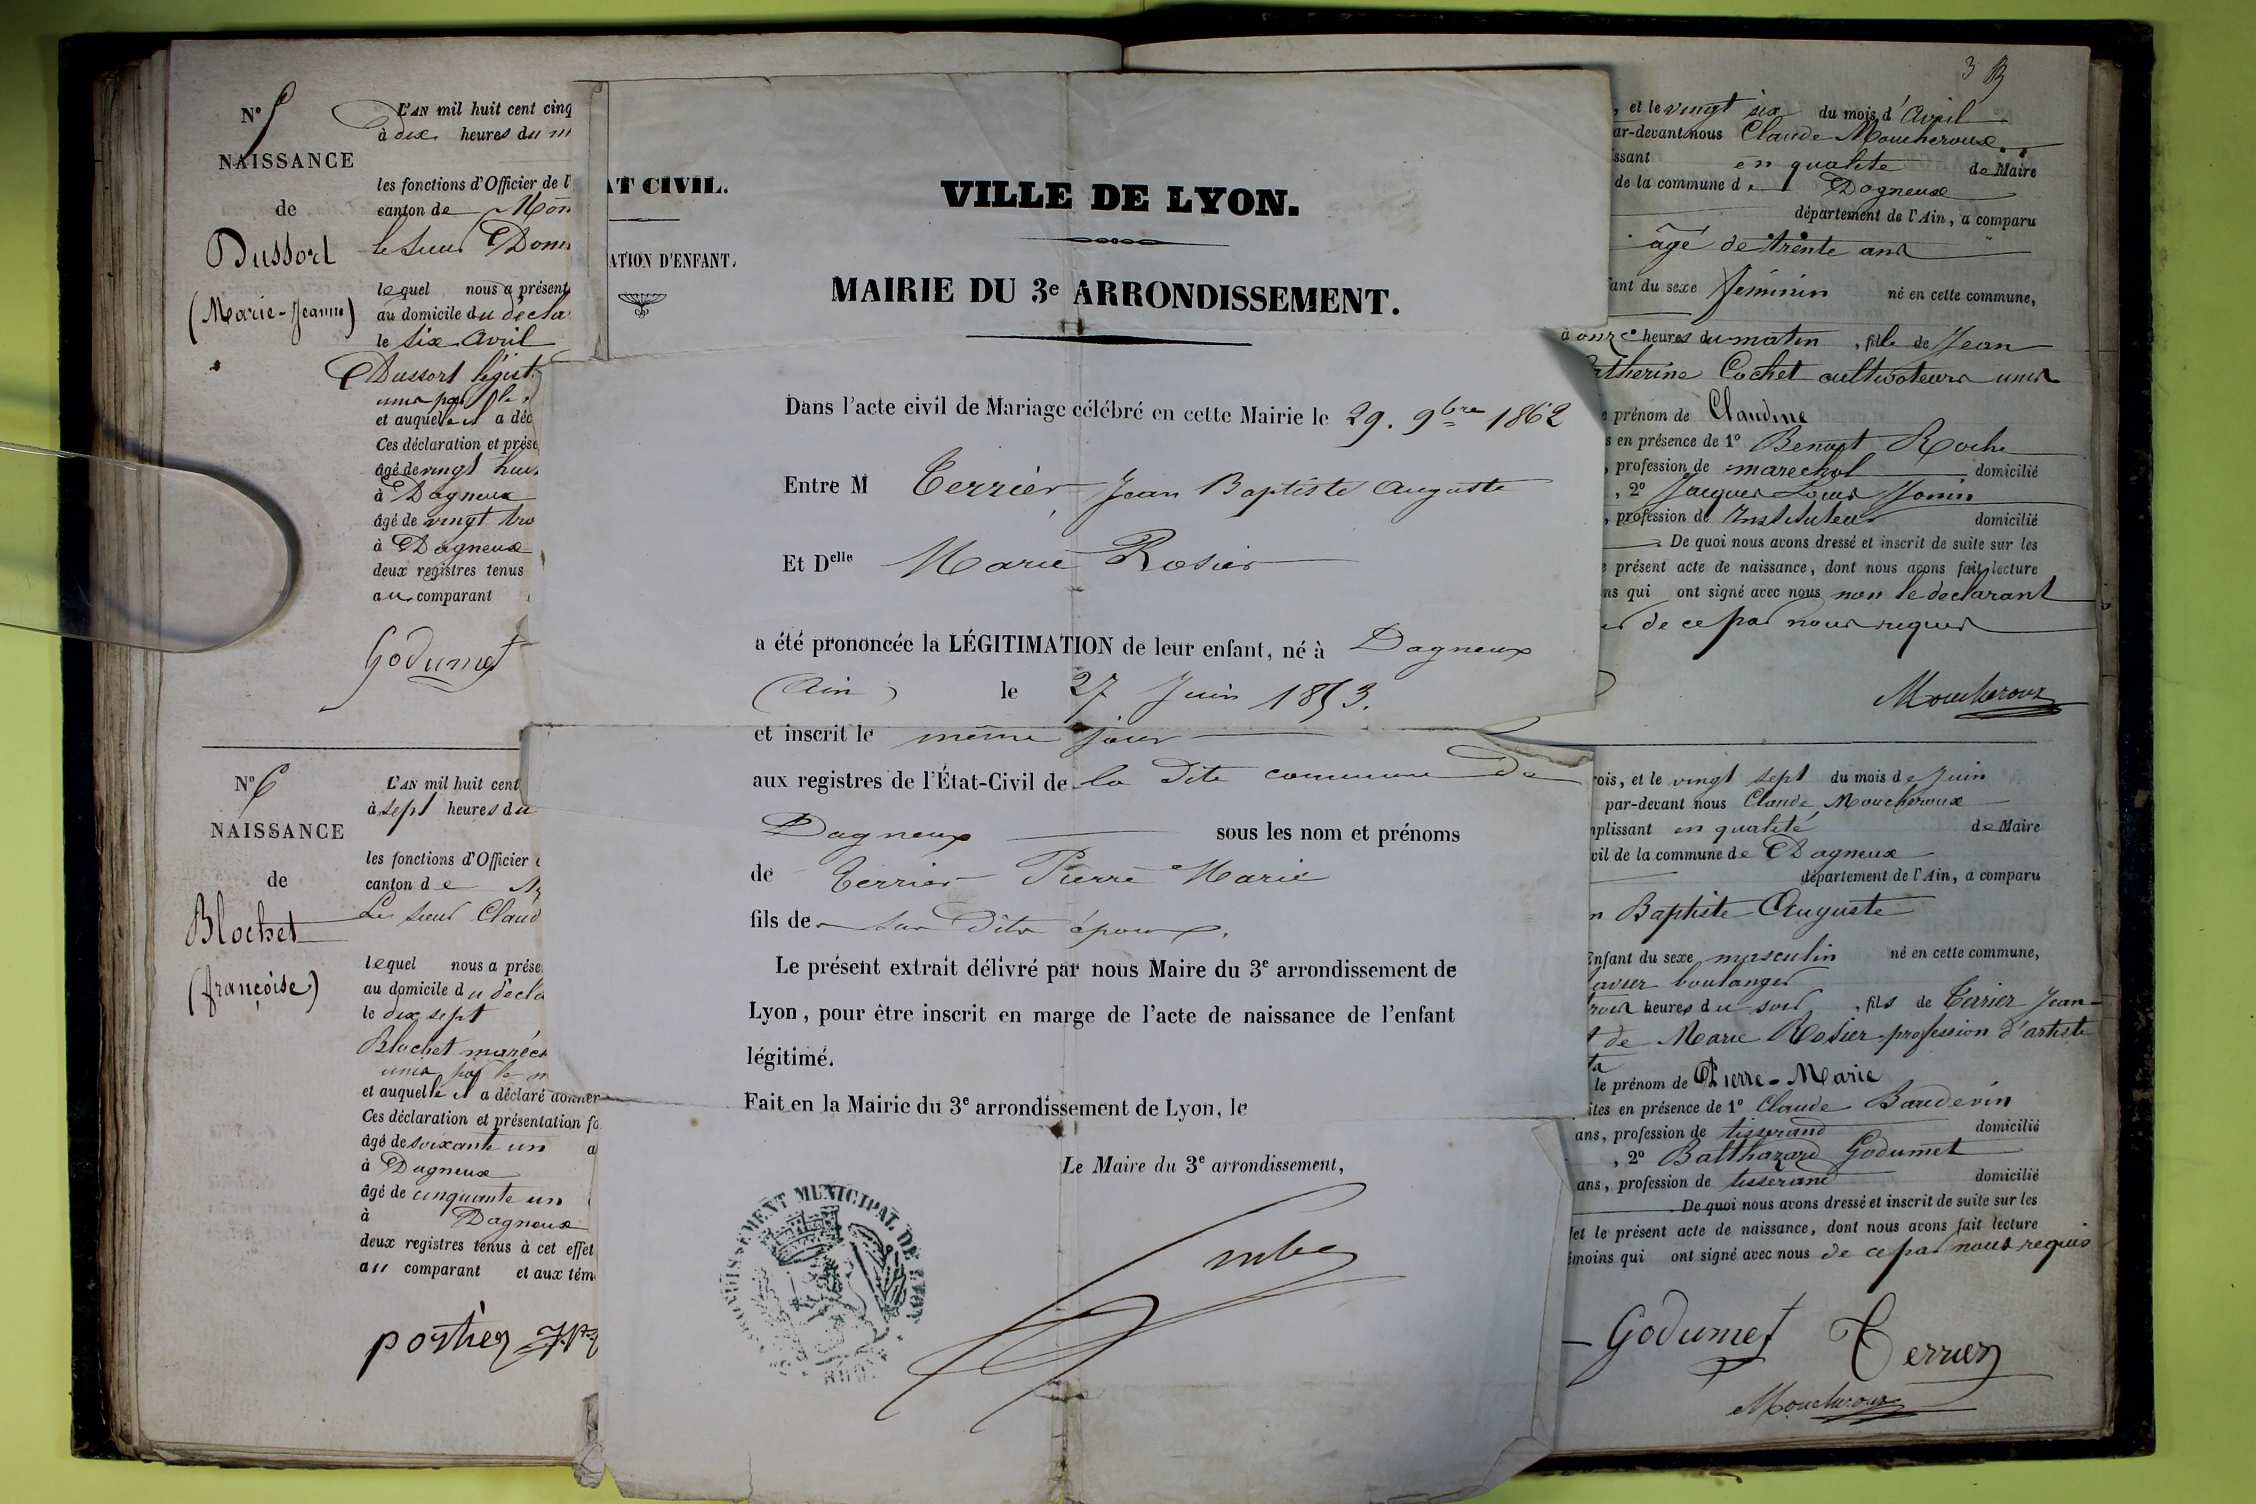 N° 5
NAISSANCE
de
Dussort
(Marie-Jeanne)
L'AN mil huit cent cinq
à dix heures du m
les fonctions d'Officier de l'
canton de Mon
le sieur Dom
lequel nous a présent
au domicile du décla
le six avril
Dussort légist
unis par le
et auquel il a déc
Ces déclaration et prése
âgé de vingt huit
à Dagneux
âgé de vingt tro
à Dagneux
deux registres tenus
au comparant
Godumet
N° 6
NAISSANCE
de
Blochet
(françoise)
L'AN mil huit cent
à sept heures du
les fonctions d'Officier
canton de
Le sieur Claud
lequel nous a prése
au domicile du décla
le dix sept
Blochet maréch
unis par le m
et auquel il a déclaré donner
Ces déclaration et présentation fa
âgé de soixante un a
à Dagneux
âgé de cinquante un
à Dagneux
deux registres tenus à cet effet
au comparant et aux tém
portier
AT CIVIL.
ATION D'ENFANT.
VILLE DE LYON.
MAIRIE DU 3e ARRONDISSEMENT.
Dans l'acte civil de Mariage célébré en cette Mairie le 29. 9bre 1862
Entre M Terrier Jean Baptiste Auguste
Et Delle Marie Rosier
a été prononcée la LÉGITIMATION de leur enfant, né à Dagneux
(Ain) le 27 Juin 1853.
et inscrit le même jour
aux registres de l'État-Civil de la dite commune de
Dagneux sous les nom et prénoms
de Terrier Pierre Marie
fils des sus dits époux.
Le présent extrait délivré par nous Maire du 3e arrondissement de
Lyon, pour être inscrit en marge de l'acte de naissance de l'enfant
légitimé.
Fait en la Mairie du 3e arrondissement de Lyon, le
Le Maire du 3e arrondissement,
ARRONDISSEMENT MUNICIPAL DE LYON
3
, et le vingt six du mois d'avril
ar-devant nous Claude Moucheroux
issant en qualité de Maire
de la commune de Dagneux
département de l'Ain, a comparu
âgé de trente ans
fant du sexe féminin né en cette commune,
à onze heures du matin, fille de Jean
atherine Cochet cultivateurs unis
prénom de Claudine
s en présence de 1° Benoit Roche
, profession de maréchal domicilié
, 2° Jacques Louis Jonin
, profession de Instituteur domicilié
De quoi nous avons dressé et inscrit de suite sur les
présent acte de naissance, dont nous avons fait lecture
ns qui ont signé avec nous non le déclarant
de ce par nous requis
Moucheroux
rois, et le vingt sept du mois de Juin
par-devant nous Claude Moucheroux
mplissant en qualité de Maire
vil de la commune de Dagneux
département de l'Ain, a comparu
n Baptiste Auguste
Enfant du sexe masculin né en cette commune,
avier boulanger
rois heures du soir, fils de Terrier Jean-
t de Marie Rosier profession d'artiste
le prénom de Pierre-Marie
ites en présence de 1° Claude Baudevin
ans, profession de tisserand domicilié
, 2° Balthazard Godumet
ans, profession de tisserand domicilié
De quoi nous avons dressé et inscrit de suite sur les
et le présent acte de naissance, dont nous avons fait lecture
émoins qui ont signé avec nous de ce par nous requis
Godumet Terrier
Moucheroux